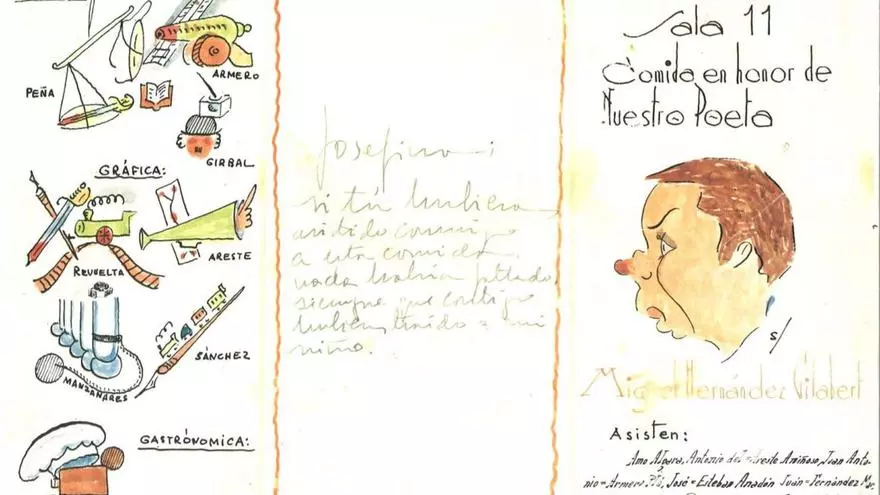 PEÑA
ARMERO
GIRBAL
GRÁFICA:
REVUELTA
ARESTE
MANZANARES
SÁNCHEZ
GASTRÓNOMICA:
Josefina:
si tú hubieras
asistido conmigo
a esta comida
nada habría faltado
siempre que contigo
hubieras traído a mi
niño.
Sala 11
Comida en honor de
Nuestro Poeta
S/
Miguel Hernández Gilabert
Asisten:
Amo Algara, Antonio del = Areste Aniñoso, Juan Anto-
nio = Armero Plá, José = Esteban Anadón Juan = Fernández